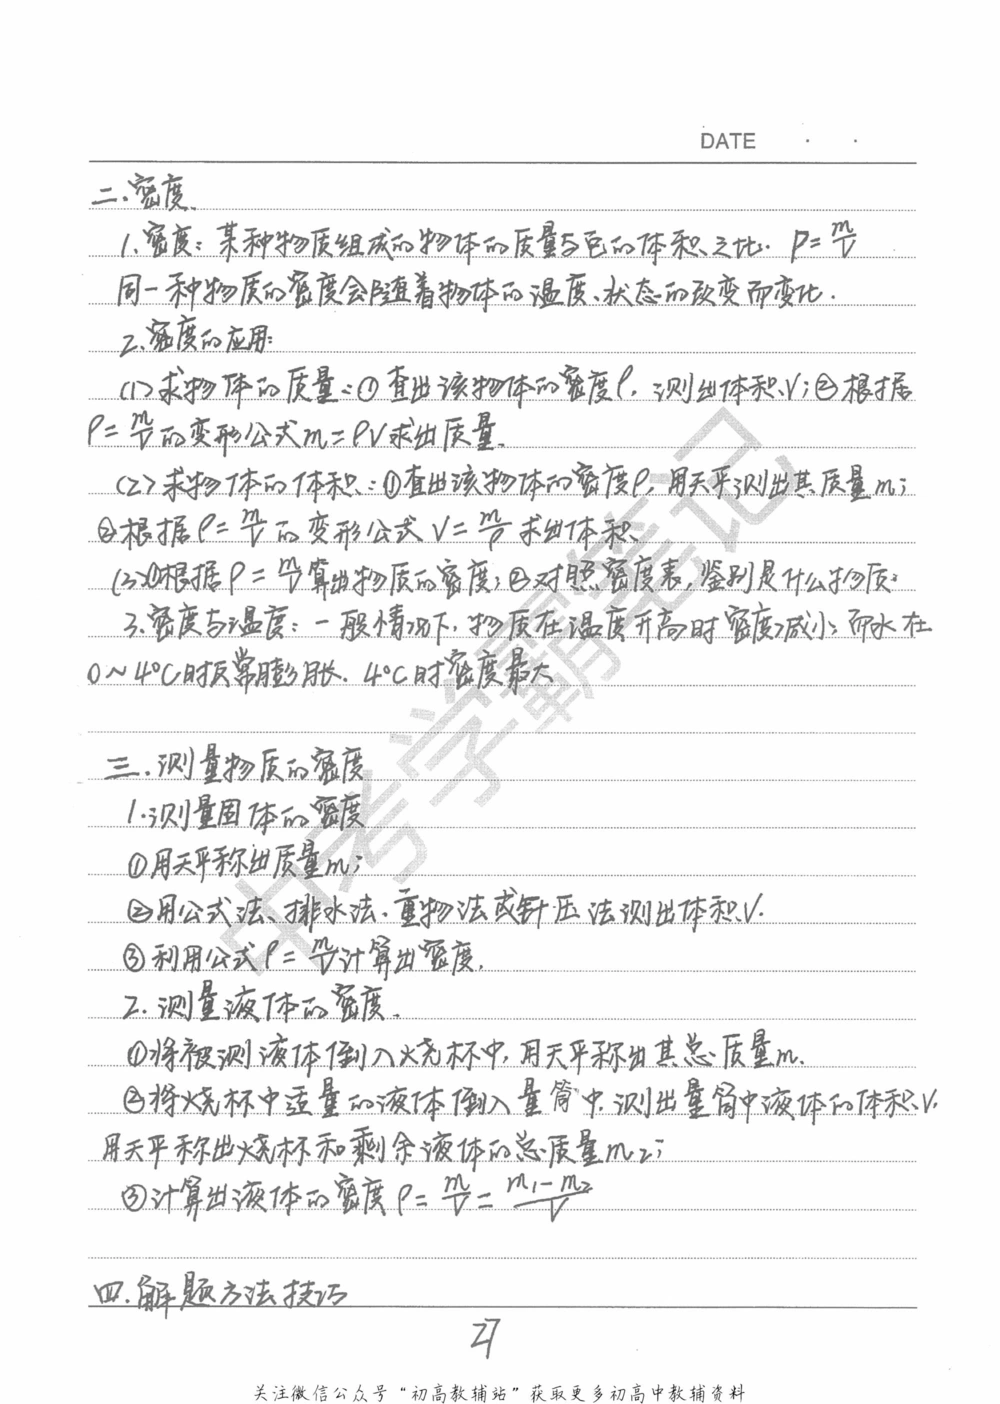 DATE · ·
二.密度.
1.密度：某种物质组成的物体的质量与它的体积之比. ρ=m/V
同一种物质的密度会随着物体的温度、状态的改变而变化.
2.密度的应用：
(1)求物体的质量：①查出该物体的密度ρ，测出体积V；②根据
ρ=m/V的变形公式m=ρV求出质量.
(2)求物体的体积：①查出该物体的密度ρ，用天平测出其质量m；
②根据ρ=m/V的变形公式V=m/ρ求出体积.
(3)①根据ρ=m/V算出物质的密度；②对照密度表，鉴别是什么物质.
3.密度与温度：一般情况下，物质在温度升高时密度减小；而水在
0~4℃时反常膨胀.4℃时密度最大
三.测量物质的密度
1.测量固体的密度
①用天平称出质量m；
②用公式法、排水法、重物法或针压法测出体积V.
③利用公式ρ=m/V计算出密度.
2.测量液体的密度.
①将被测液体倒入烧杯中，用天平称出其总质量m.
②将烧杯中适量的液体倒入量筒中.测出量筒中液体的体积V.
用天平称出烧杯和剩余液体的总质量m₂；
③计算出液体的密度ρ=m/V=(m₁-m₂)/V
四.解题方法技巧
27
关注微信公众号“初高教辅站”获取更多初高中教辅资料
中考学霸笔记